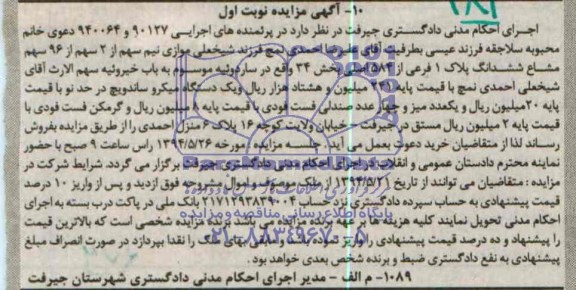 ۱۸۲
۱۰- آگهی مزایده نوبت اول
اجرای احکام مدنی دادگستری جیرفت در نظر دارد در پرونده های اجرایی ۹۰۱۲۷ و ۹۴۰۰۶۴ دعوی خانم
محبوبه سلاجقه فرزند عیسی بطرفیت آقای علیرضا احمدی نمچ فرزند شیخعلی موازی نیم سهم از ۲ سهم از ۹۶ سهم
مشاع ششدانگ پلاک ۱ فرعی از ۵۸۴ اصلی بخش ۳۴ واقع در ساردوئیه موسوم به باب خیروئیه سهم الارث آقای
شیخعلی احمدی نمچ با قیمت پایه میلیون و هشتاد هزار ریال ویک دستگاه میکرو ساندویچ در حد نو با قیمت
پایه ۲۰میلیون ریال و یکعدد میز و چهار عدد صندلی فست فودی با قیمت پایه ۸ میلیون ریال و گرمکن فست فودی با
قیمت پایه ۲ میلیون ریال مستق در جیرفت – خیابان ولایت کوچه ۱۶ پلاک ۶ منزل احمدی را از طریق مزایده بفروش
رساند لذا از متقاضیان خرید دعوت بعمل می آید . جلسه مزایده مورخه ۱۳۹۴/۵/۲۶ راس ساعت ۹ صبح با حضور
نماینده محترم دادستان عمومی و انقلاب در اجرای احکام مدنی دادگستری جیرفت برگزار می گردد. شرایط شرکت در
مزایده : متقاضیان می توانند از تاریخ ۱۳۹۴/۵/۲۱ از ملک موصوف و اموال مشروحه فوق ازدید و پس از واریز ۱۰ درصد
قیمت پیشنهادی به حساب سپرده دادگستری نزد حساب ۲۱۷۱۲۹۳۸۳۹۰۰۴ بانک ملی در پاکت درب بسته به اجرای
احکام مدنی تحویل نمایند کلیه هزینه ها بر عهده برنده مزایده می باشد برنده مزایده شخصی است که بالاترین قیمت
را پیشنهاد و ده درصد قیمت پیشنهادی را واریز نموده باشد و مابقی بهای ملک را نقدا بپردازد در صورت انصراف مبلغ
پیشنهادی به نفع دادگستری ضبط و برنده شخص بعدی خواهد بود.
۱۰۸۹- م الف - مدیر اجرای احکام مدنی دادگستری شهرستان جیرفت
پایگاه اطلاع رسانی مناقصه و مزایده
۰۲۱-۸۸۳۴۹۶۷۰-۵